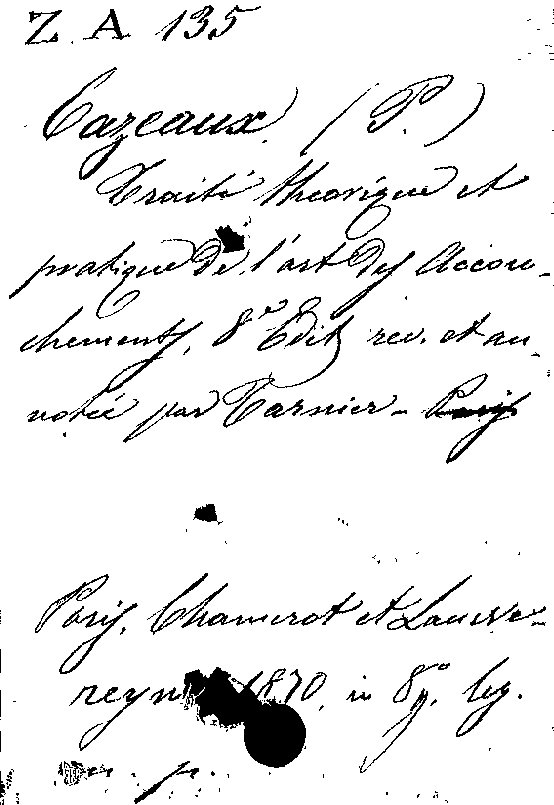 Z A 135
Cazeaux. (P.)
Traité théorique et
pratique de l'art des Accou-
chements, 8e Edit rev. et an-
notée par Tarnier - Paris
Paris, Chamerot et Lauwe-
reyns 1870, in 8o,